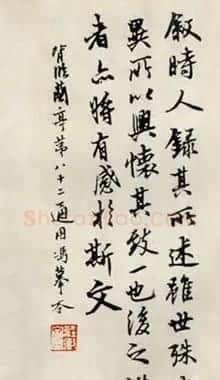 叙時人錄其所述雖世殊
異所以興懷其致一也後之
者亦將有感於斯文
背臨蘭亭第八十二通用馮摹本